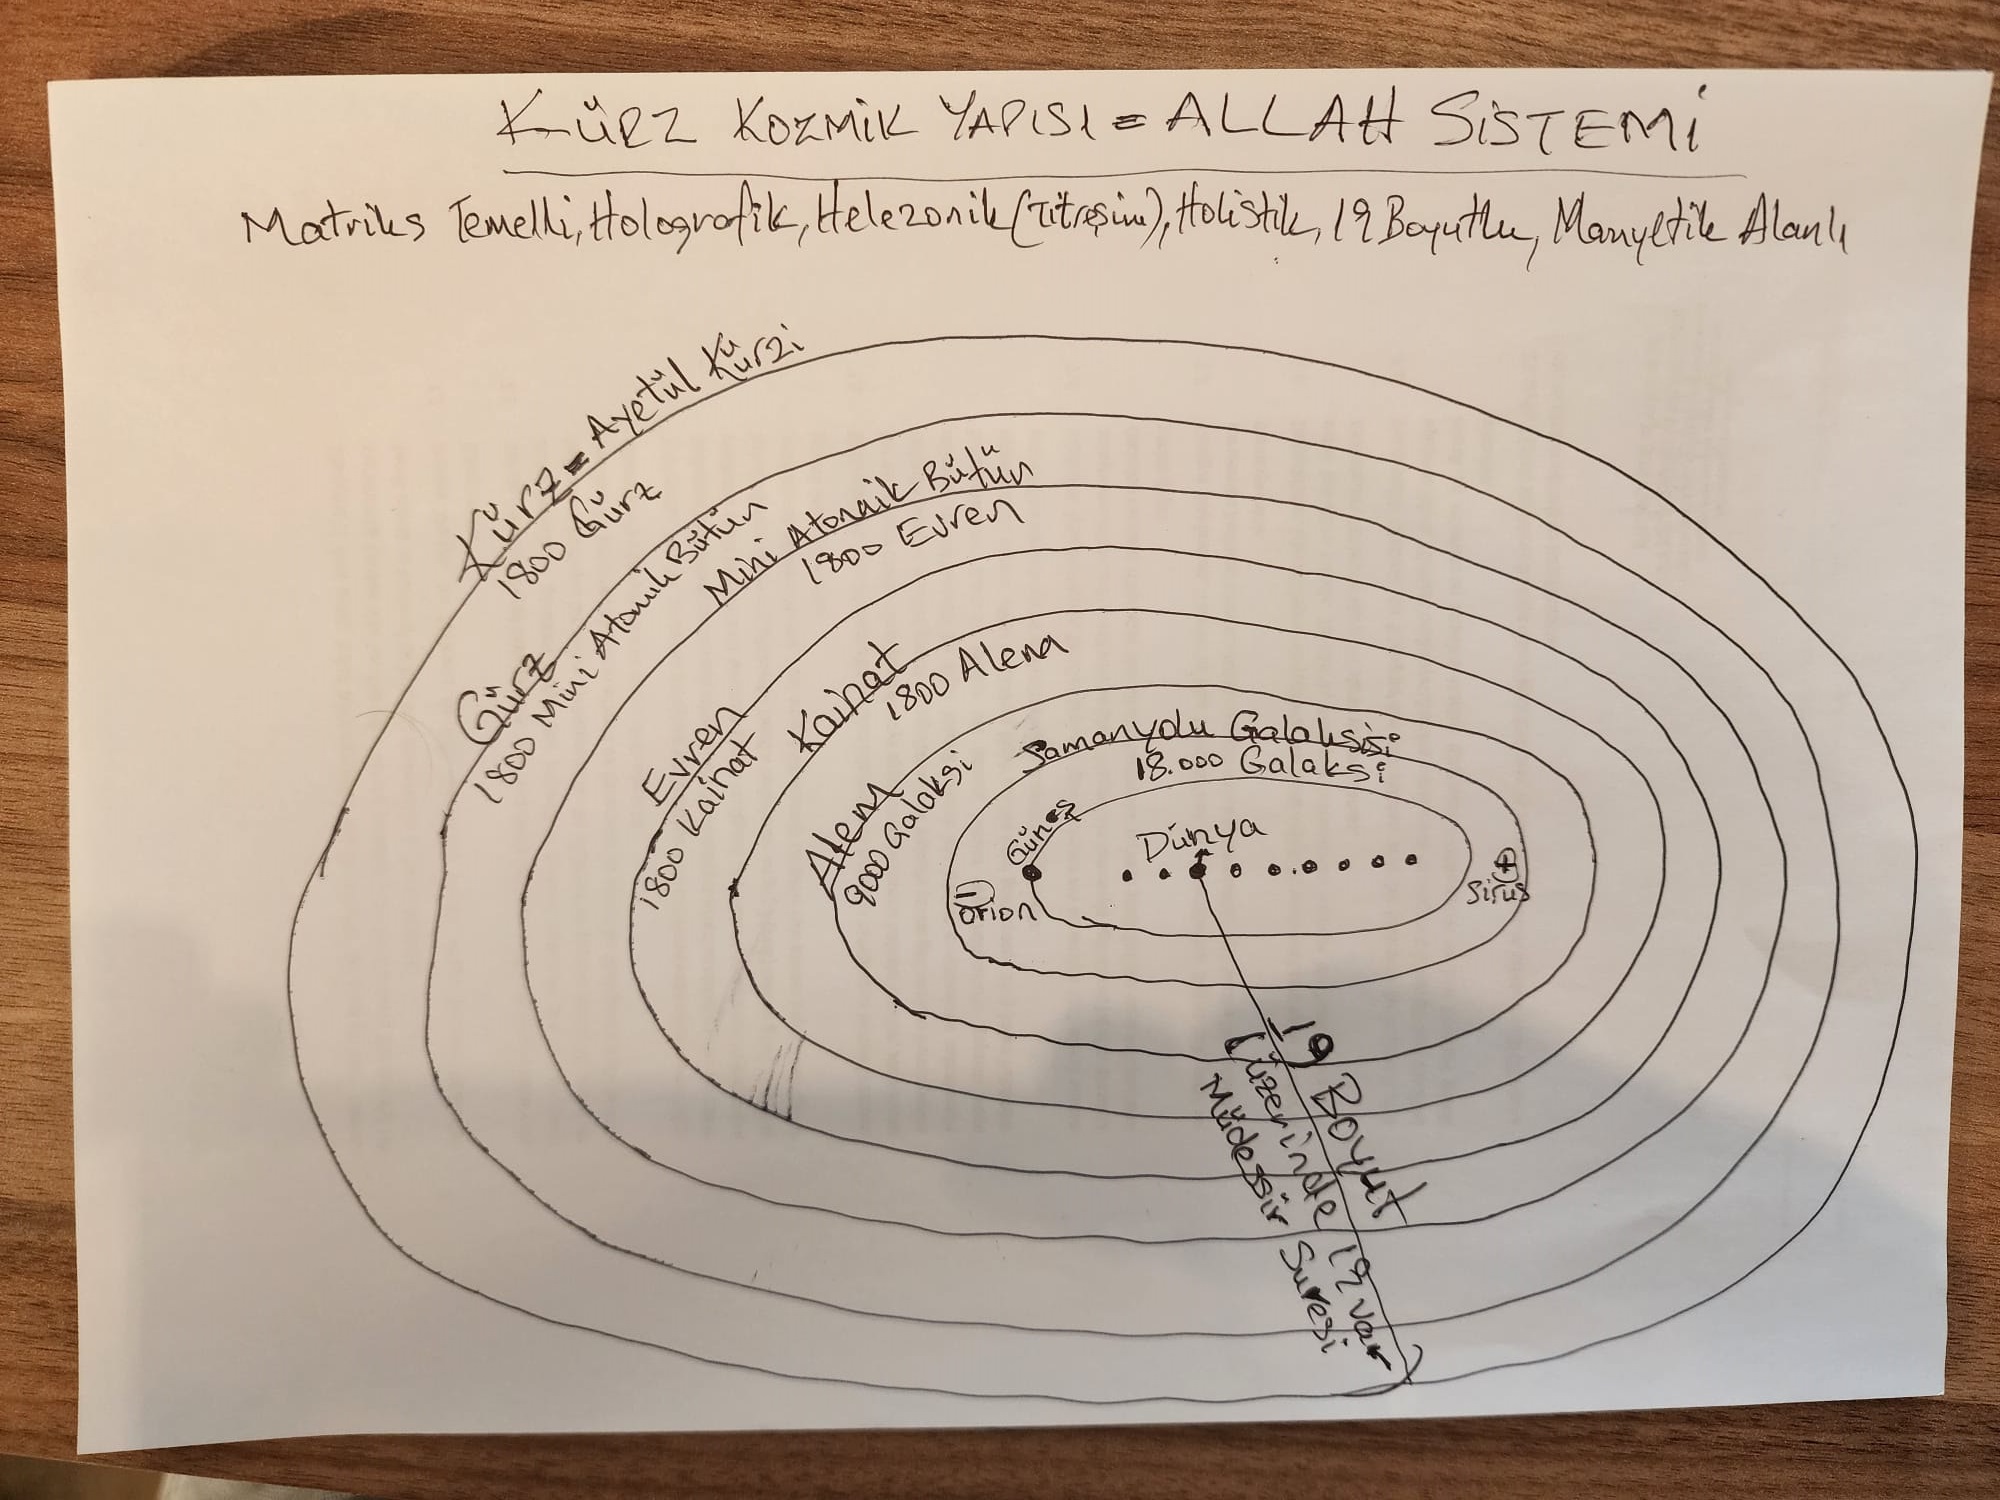 KÜRZ KOZMİK YAPISI = ALLAH SİSTEMİ
Matriks Temelli, Holografik, Helezonik (Titreşim), Holistik, 19 Boyutlu, Manyetik Alanlı
Kürz = Ayetül Kürzi
1800 Gürz
Gürz
1800 Mini Atomik Bütün
Mini Atomik Bütün
1800 Evren
Evren
1800 Kainat
Kainat
1800 Alem
Alem
9000 Galaksi
Samanyolu Galaksisi
18.000 Galaksi
Güneş
Dünya
-
Orion
+
Sirus
19 Boyut
(Üzerinde 19 var
Müdessir Suresi)